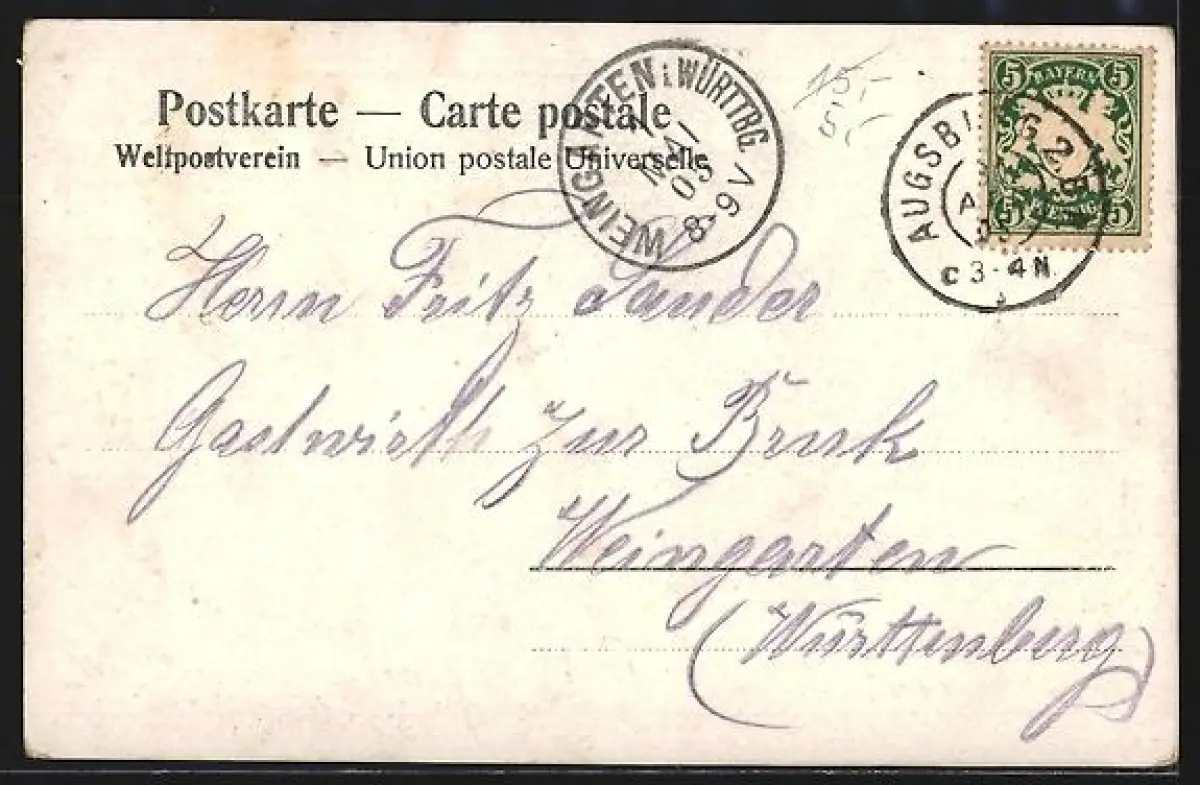 Postkarte — Carte postale
Weltpostverein — Union postale Universelle
WEINGARTEN i. WÜRTTBG.
MAI
03
8-9 V
15,-
5,-
AUGSBURG 2.
C 3-4 N.
5 BAYERN 5
5 PFENNIG 5
Herrn Fritz Sander
Gastwirth zur Bruk
Weingarten
(Württenberg)